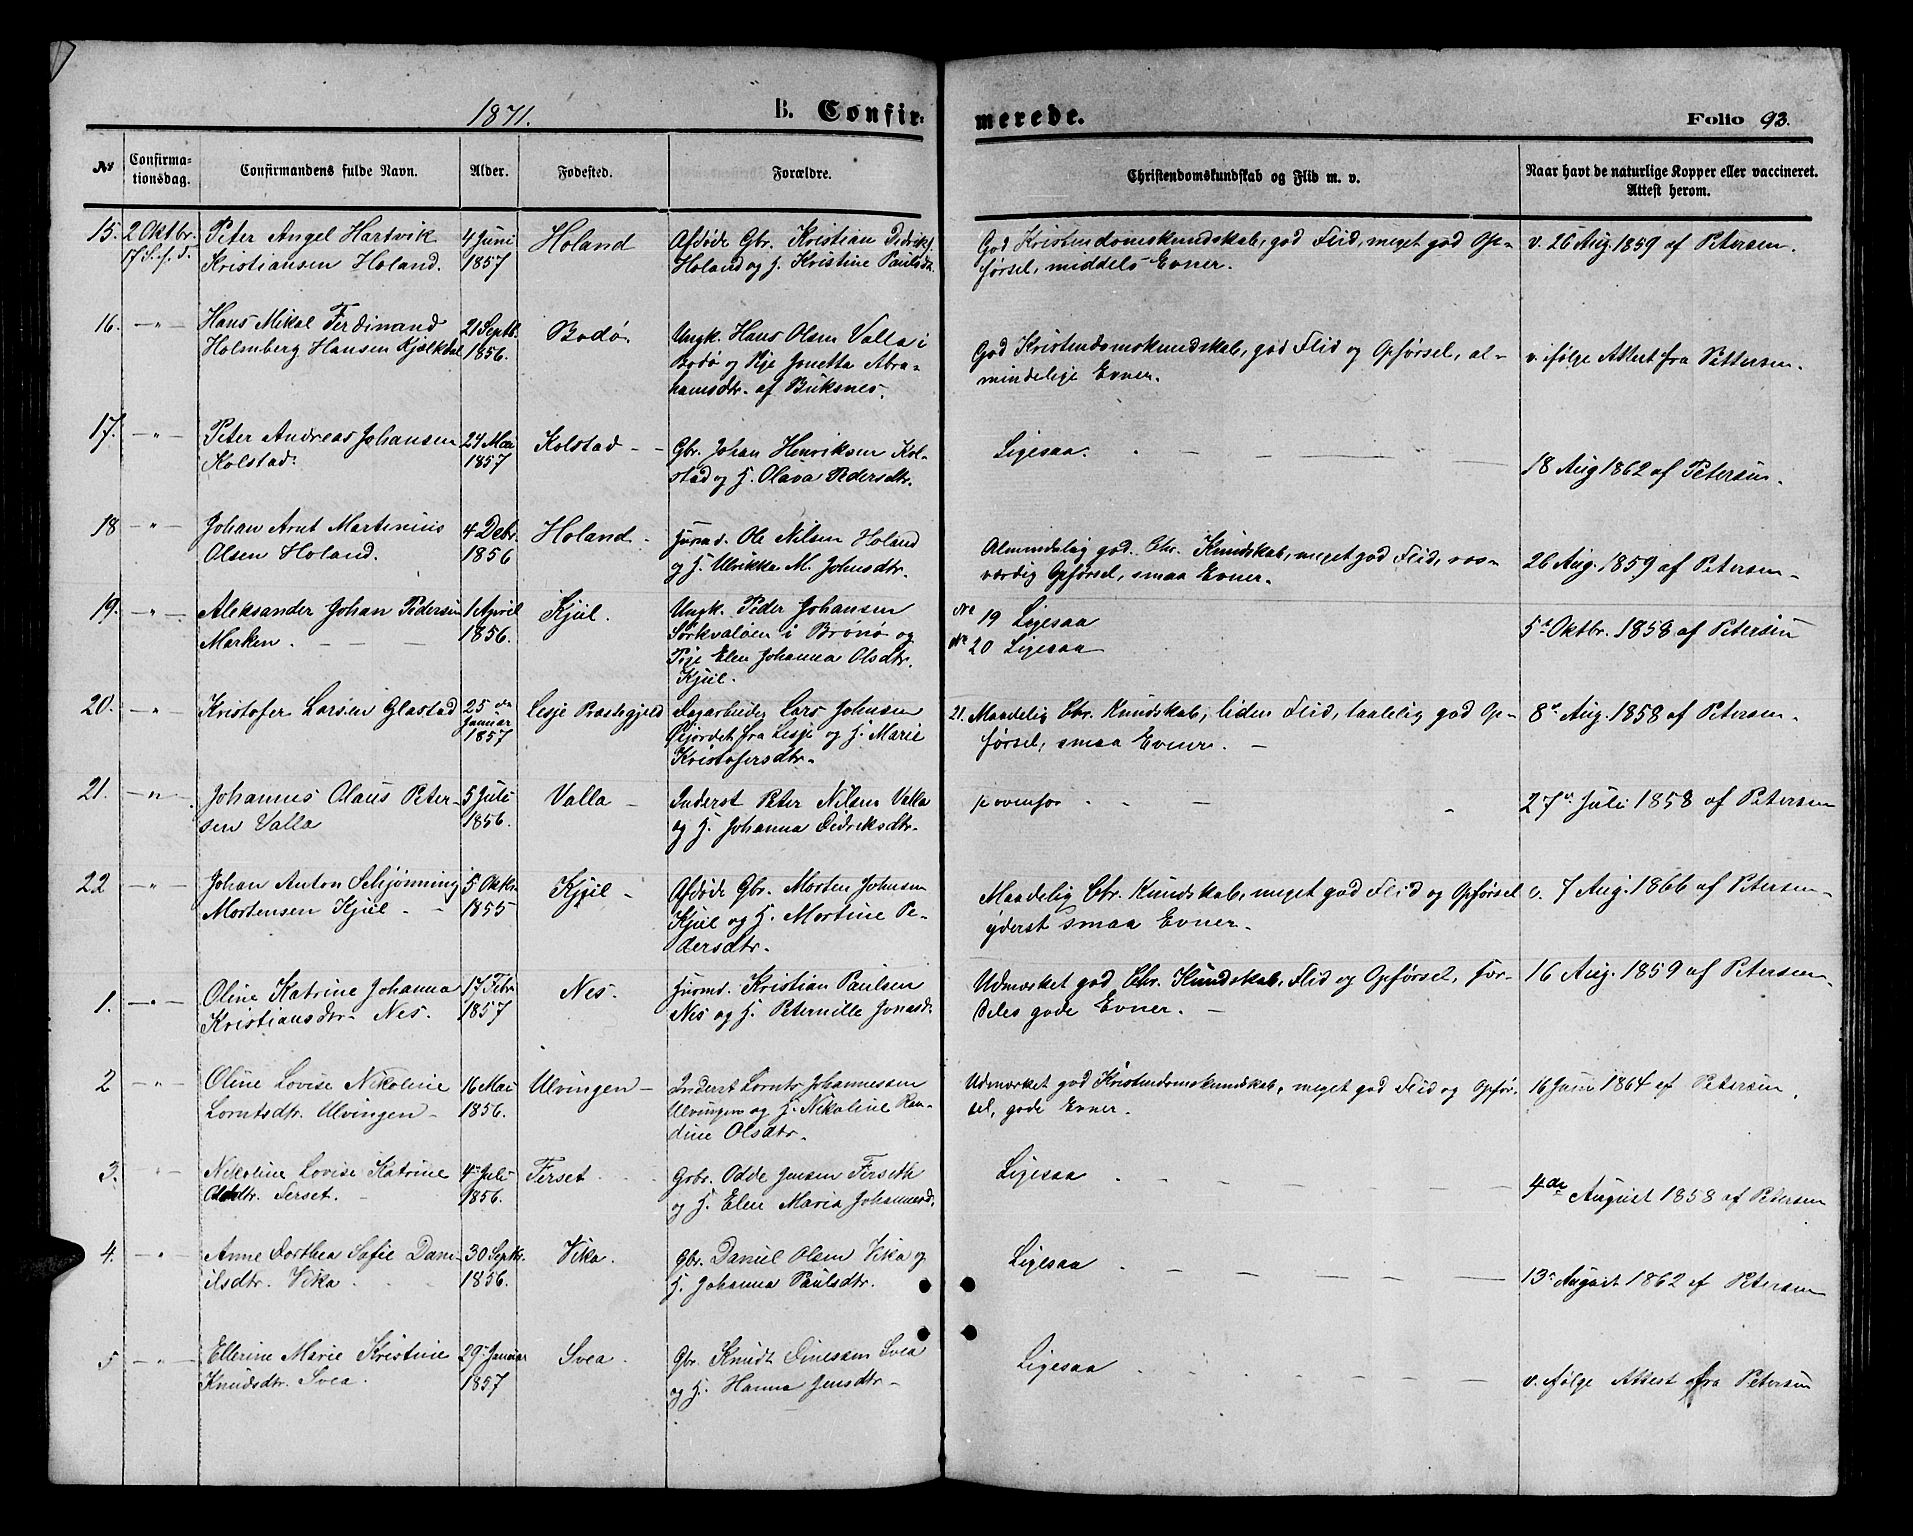 1871.
B. Confir-
merede.
Folio 93.
No
Confirma-
tionsdag.
Confirmandens fulde Navn.
Alder.
Fødested.
Forældre.
Christendomskundskab og Flid m. v.
Naar havt de naturlige Kopper eller vaccineret.
Attest herom.
15. 2 Oktbr. Peter Angel Hartvik 4 Juni Holand Afdøde Gbr. Kristian Didriks. God Kristendomskundskab, god Flid, meget god Op- v. 26 Aug. 1859 af Petersen.
17 S. f. T. Kristiansen Holand. 1857 Holand og H. Kristine Paulsdtr. førsel, middels Evner.
16. -"- Hans Mikal Ferdinand 21 Septb. Bodø. Ungk. Hans Olsen Valla i God Kristendomskundskab, god Flid og Opførsel, al- v. ifølge Attest fra Pettersen.
Holmberg Hansen Kjælkdal 1856. Bodø og Pige Jonetta Abra- mindelige Evner.
hamsdtr. af Buksnes.
17. -"- Peter Andreas Johansen 24 Mai Kolstad - - Gbr. Johan Henriksen Kol- Ligesaa. 18 Aug 1862 af Petersen.
Kolstad. 1857 stad og H. Olava Pedersdtr.
18 -"- Johan Arnt Martinius 4 Debr. Holand - Huusmd. Ole Nilsen Holand Almindelig god Chr. Kundskab, meget god Flid, ros- 26 Aug. 1859 af Petersen -
Olsen Holand. 1856 og H. Ulrikka M. Johnsdtr. værdig Opførsel, smaa Evner.
19. -"- Aleksander Johan Pedersen 1 April Kjul. Ungk. Peder Johansen No 19 Ligesaa 5te Oktbr. 1858 af Petersen
Marken. - - - 1856. Sørkvaløen i Brønø og No 20 Ligesaa
Pige Elen Johanna Olsdtr.
Kjul.
20. -"- Kristofer Larsen Glastad 25de Lesje Præstegjeld Dagarbeider Lars Johnsen 21. Maadelig Chr. Kundskab, liden Flid, taalelig god Op- 8de Aug. 1858 af Petersen.
Januar 1857 fra Lesje og H. Marie førsel, smaa Evner. -
Kristofersdtr.
21. -"- Johannes Olaus Peter- 5 Juli Valla - Inderst Peter Nilsen Valla ovenfor 27de Juli 1858 af Petersen
sen Valla 1856. og H. Johanna Didriksdtr.
22 -"- Johan Anton Schjønning 5 Oktbr. Kjul - Afdøde Gbr. Morten Johnsen Maadelig Chr. Kundskab, meget god Flid og Opførsel v. 7 Aug. 1866 af Petersen -
Mortensen Kjul - 1855 Kjul og H. Martine Pe- yderst smaa Evner.
dersdtr.
1. -"- Oline Katrine Johanna 17 Febr. Nes. Huusmd. Kristian Paulsen Udmerket god Chr. Kundskab, Flid og Opførsel, for- 16 Aug. 1859 af Petersen.
Kristiansdtr. Nes. 1857 Nes og H. Peternille Jonasdtr. deles gode Evner. -
2 -"- Oline Lovise Nikoline 16 Mai Ulvingen - Inderst Lornts Johannessen Udmerket god Kristendomskundskab, meget god Flid og Opfør- 16 Juni 1864 af Petersen
Lorntsdtr. Ulvingen - 1856. Ulvingen og H. Nikoline Ran- sel, gode Evner.
dine Olsdtr.
3. -"- Nikoline Lovise Katrine 4de Juli Ferset Grbr. Odde Jensen Ferseth Ligesaa 4de August 1858 af Petersen
Oddsdtr. Ferset. 1856. og H. Elen Maria Johannesd.
4. -"- Anne Dorthea Sofie Dani- 30 Septb. Vika. Gbr. Daniel Olsen Vika og Ligesaa 13de August 1862 af Petersen
ilsdtr. Vika. 1856. H. Johanna Paulsdtr.
5 -"- Ellerine Marie Kristine 29de Januar Svea. Gbr. Knudt Dinessen Svea Ligesaa v. ifølge Attest fra Petersen
Knudsdtr. Svea. 1857 og H. Hanna Jensdtr -